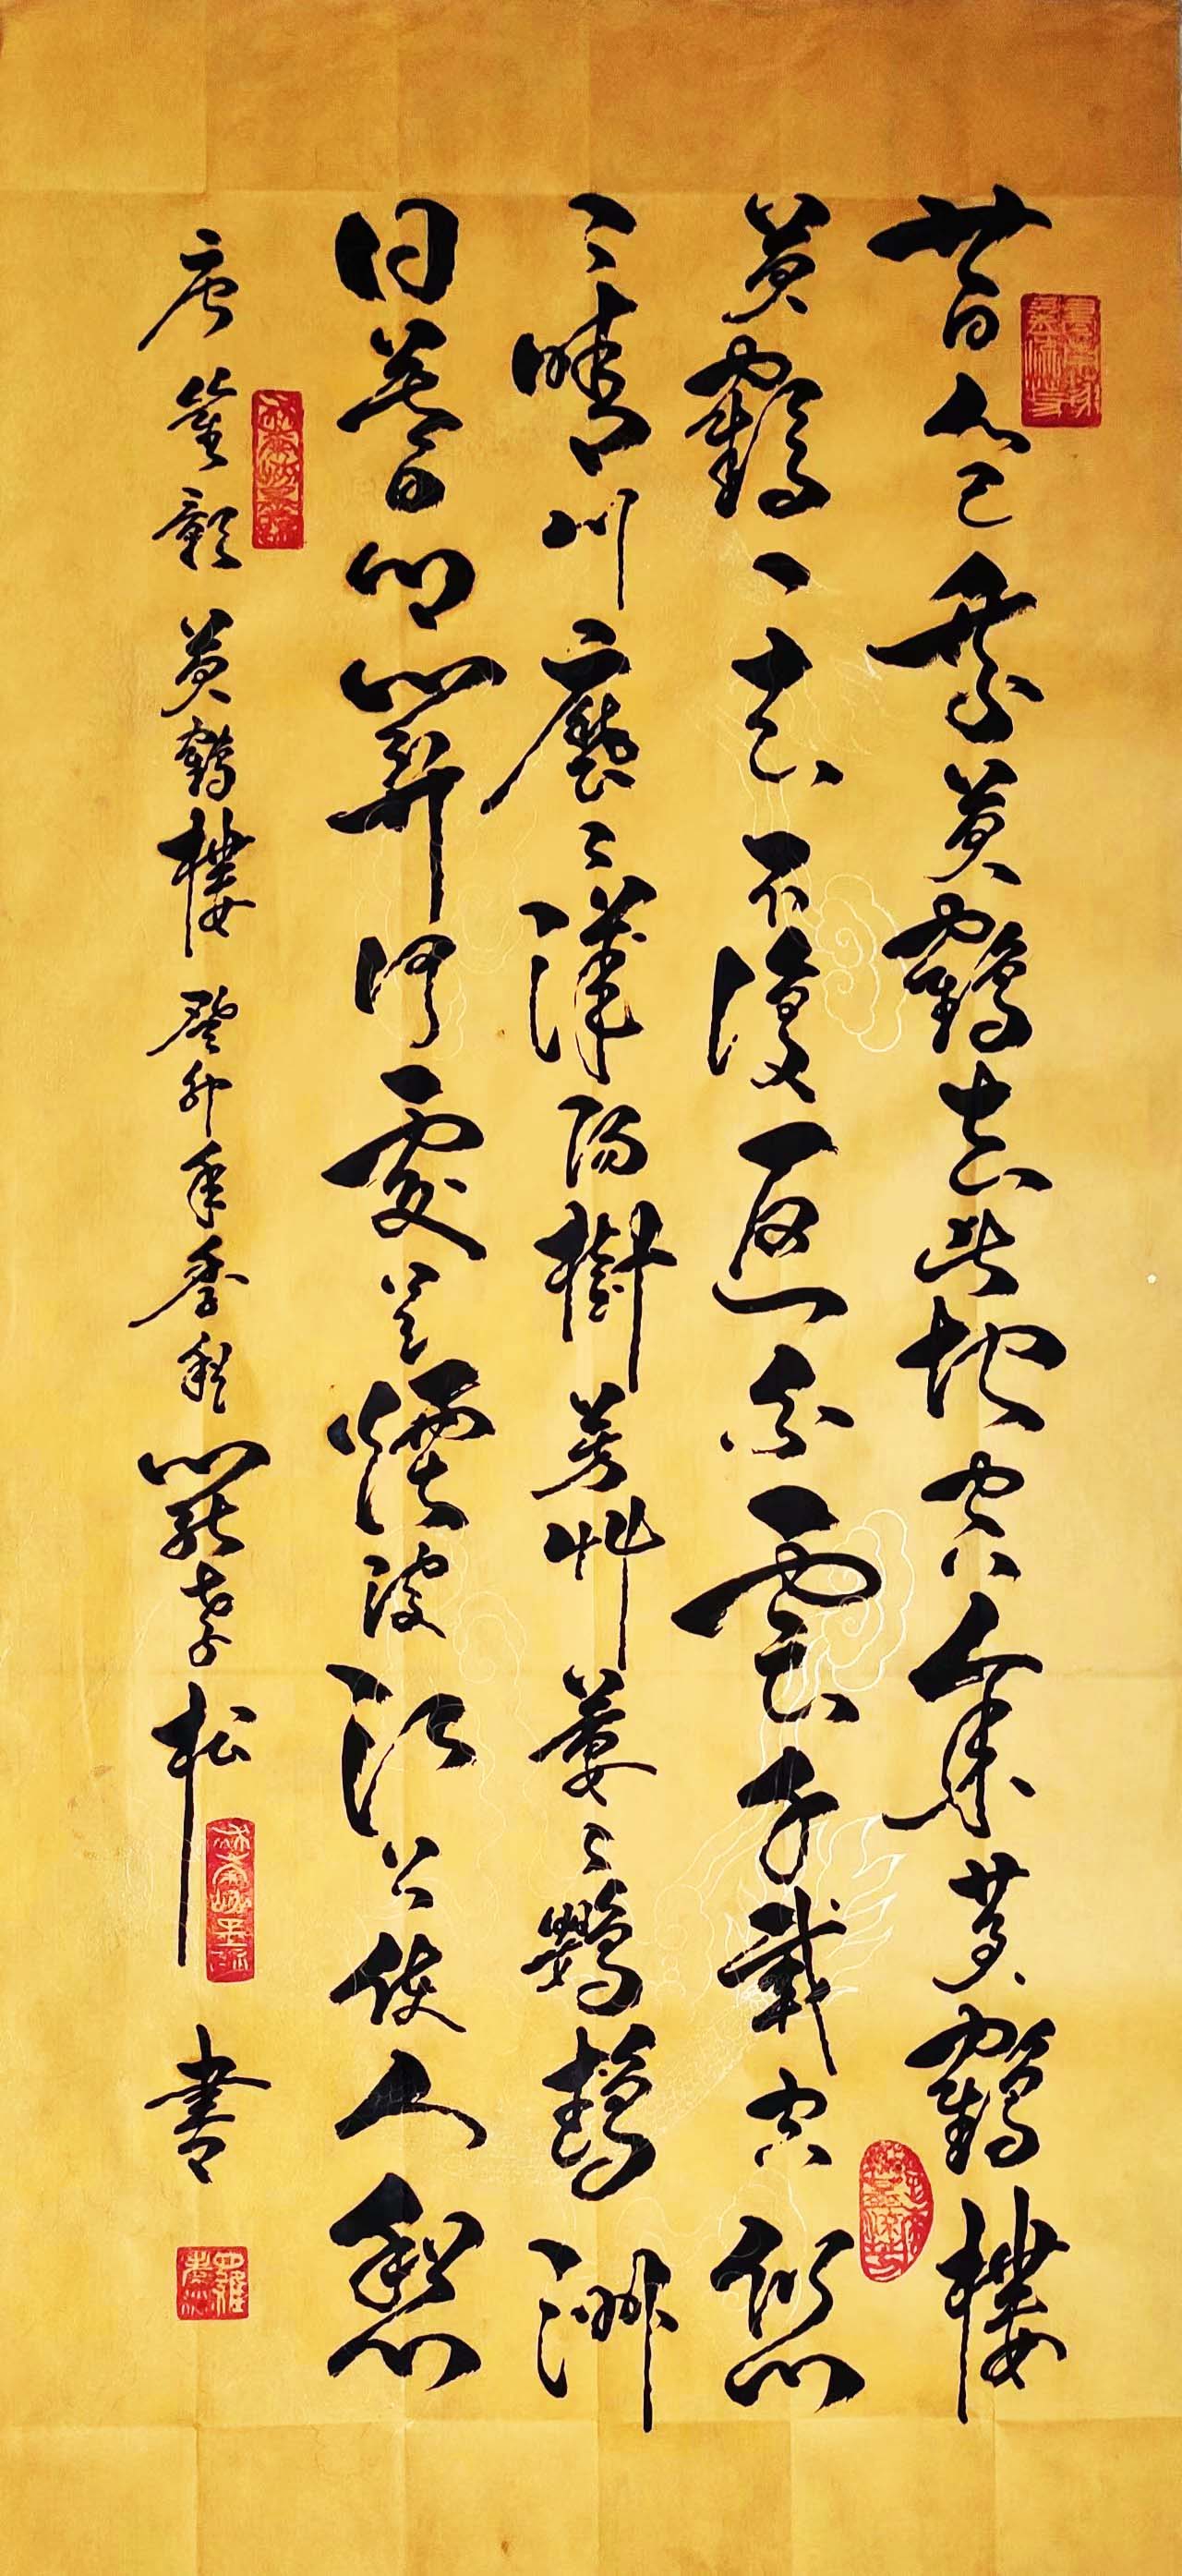 昔人已乘黄鹤去此地空余黄鹤樓
黄鹤一去不復返白雲千載空悠
々晴川歷々漢陽樹芳艸萋々鸚鵡洲
日暮鄉關何處是煙波江上使人愁
唐崔顥黄鹤樓癸卯年季秋羅孝松書